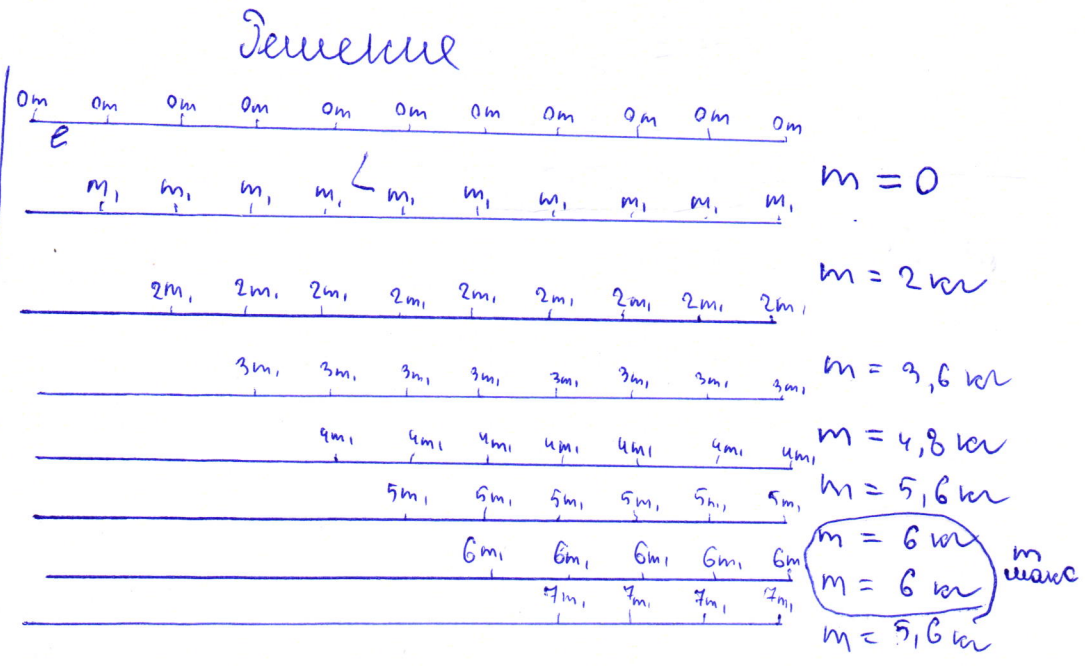 Решение
0m 0m 0m 0m 0m 0m 0m 0m 0m 0m 0m
l
L
m = 0
m₁ m₁ m₁ m₁ m₁ m₁ m₁ m₁ m₁ m₁
m = 2 кг
2m₁ 2m₁ 2m₁ 2m₁ 2m₁ 2m₁ 2m₁ 2m₁ 2m₁
m = 3,6 кг
3m₁ 3m₁ 3m₁ 3m₁ 3m₁ 3m₁ 3m₁ 3m₁
m = 4,8 кг
4m₁ 4m₁ 4m₁ 4m₁ 4m₁ 4m₁ 4m₁
m = 5,6 кг
5m₁ 5m₁ 5m₁ 5m₁ 5m₁ 5m₁
m = 6 кг
6m₁ 6m₁ 6m₁ 6m₁ 6m
m = 6 кг
m макс
7m₁ 7m₁ 7m₁ 7m₁
m = 5,6 кг